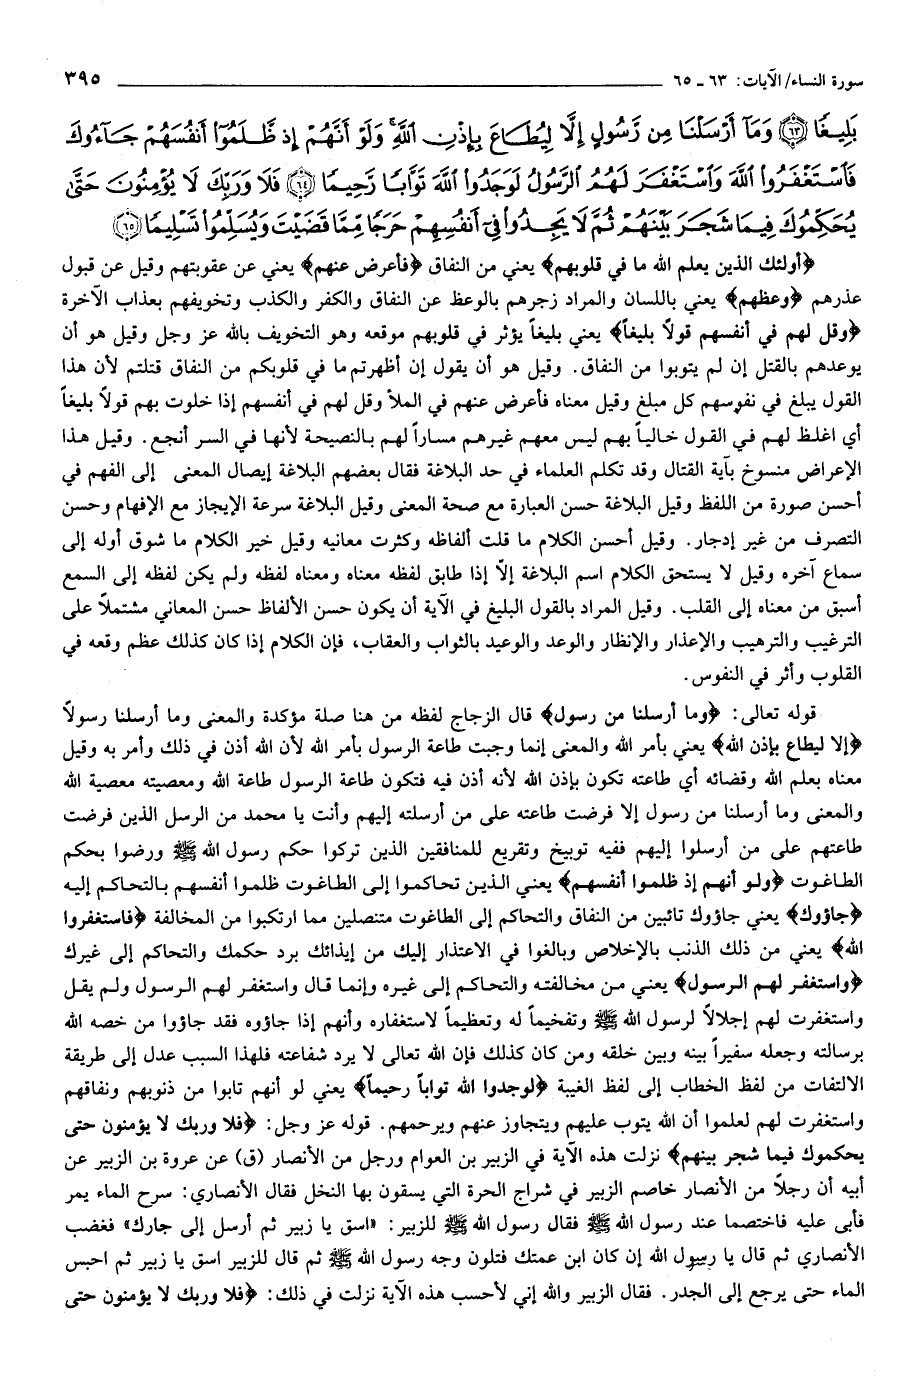 سورة النساء/ الآيات: ٦٣ ـ ٦٥
٣٩٥
بَلِيغًا ﴿٦٣﴾ وَمَآ أَرْسَلْنَا مِن رَّسُولٍ إِلَّا لِيُطَاعَ بِإِذْنِ ٱللَّهِ ۚ وَلَوْ أَنَّهُمْ إِذ ظَّلَمُوٓا۟ أَنفُسَهُمْ جَآءُوكَ
فَٱسْتَغْفَرُوا۟ ٱللَّهَ وَٱسْتَغْفَرَ لَهُمُ ٱلرَّسُولُ لَوَجَدُوا۟ ٱللَّهَ تَوَّابًا رَّحِيمًا ﴿٦٤﴾ فَلَا وَرَبِّكَ لَا يُؤْمِنُونَ حَتَّىٰ
يُحَكِّمُوكَ فِيمَا شَجَرَ بَيْنَهُمْ ثُمَّ لَا يَجِدُوا۟ فِىٓ أَنفُسِهِمْ حَرَجًا مِّمَّا قَضَيْتَ وَيُسَلِّمُوا۟ تَسْلِيمًا ﴿٦٥﴾
﴿أولئك الذين يعلم الله ما في قلوبهم﴾ يعني من النفاق ﴿فأعرض عنهم﴾ يعني عن عقوبتهم وقيل عن قبول
عذرهم ﴿وعظهم﴾ يعني باللسان والمراد زجرهم بالوعظ عن النفاق والكفر والكذب وتخويفهم بعذاب الآخرة
﴿وقل لهم في أنفسهم قولاً بليغاً﴾ يعني بليغاً يؤثر في قلوبهم موقعه وهو التخويف بالله عز وجل وقيل هو أن
يوعدهم بالقتل إن لم يتوبوا من النفاق. وقيل هو أن يقول إن أظهرتم ما في قلوبكم من النفاق قتلتم لأن هذا
القول يبلغ في نفوسهم كل مبلغ وقيل معناه فأعرض عنهم في الملأ وقل لهم في أنفسهم إذا خلوت بهم قولاً بليغاً
أي اغلظ لهم في القول خالياً بهم ليس معهم غيرهم مساراً لهم بالنصيحة لأنها في السر أنجع. وقيل هذا
الإعراض منسوخ بآية القتال وقد تكلم العلماء في حد البلاغة فقال بعضهم البلاغة إيصال المعنى إلى الفهم في
أحسن صورة من اللفظ وقيل البلاغة حسن العبارة مع صحة المعنى وقيل البلاغة سرعة الإيجاز مع الإفهام وحسن
التصرف من غير إدجار. وقيل أحسن الكلام ما قلت ألفاظه وكثرت معانيه وقيل خير الكلام ما شوق أوله إلى
سماع آخره وقيل لا يستحق الكلام اسم البلاغة إلّا إذا طابق لفظه معناه ومعناه لفظه ولم يكن لفظه إلى السمع
أسبق من معناه إلى القلب. وقيل المراد بالقول البليغ في الآية أن يكون حسن الألفاظ حسن المعاني مشتملاً على
الترغيب والترهيب والإعذار والإنظار والوعد والوعيد بالثواب والعقاب، فإن الكلام إذا كان كذلك عظم وقعه في
القلوب وأثر في النفوس.
قوله تعالى: ﴿وما أرسلنا من رسول﴾ قال الزجاج لفظه من هنا صلة مؤكدة والمعنى وما أرسلنا رسولاً
﴿إلا ليطاع بإذن الله﴾ يعني بأمر الله والمعنى إنما وجبت طاعة الرسول بأمر الله لأن الله أذن في ذلك وأمر به وقيل
معناه بعلم الله وقضائه أي طاعته تكون بإذن الله لأنه أذن فيه فتكون طاعة الرسول طاعة الله ومعصيته معصية الله
والمعنى وما أرسلنا من رسول إلا فرضت طاعته على من أرسلته إليهم وأنت يا محمد من الرسل الذين فرضت
طاعتهم على من أرسلوا إليهم ففيه توبيخ وتقريع للمنافقين الذين تركوا حكم رسول الله ﷺ ورضوا بحكم
الطاغوت ﴿ولو أنهم إذ ظلموا أنفسهم﴾ يعني الذين تحاكموا إلى الطاغوت ظلموا أنفسهم بالتحاكم إليه
﴿جاؤوك﴾ يعني جاؤوك تائبين من النفاق والتحاكم إلى الطاغوت متنصلين مما ارتكبوا من المخالفة ﴿فاستغفروا
الله﴾ يعني من ذلك الذنب بالإخلاص وبالغوا في الاعتذار إليك من إيذائك برد حكمك والتحاكم إلى غيرك
﴿واستغفر لهم الرسول﴾ يعني من مخالفته والتحاكم إلى غيره وإنما قال واستغفر لهم الرسول ولم يقل
واستغفرت لهم إجلالاً لرسول الله ﷺ وتفخيماً له وتعظيماً لاستغفاره وأنهم إذا جاؤوه فقد جاؤوا من خصه الله
برسالته وجعله سفيراً بينه وبين خلقه ومن كان كذلك فإن الله تعالى لا يرد شفاعته فلهذا السبب عدل إلى طريقة
الالتفات من لفظ الخطاب إلى لفظ الغيبة ﴿لوجدوا الله تواباً رحيماً﴾ يعني لو أنهم تابوا من ذنوبهم ونفاقهم
واستغفرت لهم لعلموا أن الله يتوب عليهم ويتجاوز عنهم ويرحمهم. قوله عز وجل: ﴿فلا وربك لا يؤمنون حتى
يحكموك فيما شجر بينهم﴾ نزلت هذه الآية في الزبير بن العوام ورجل من الأنصار (ق) عن عروة بن الزبير عن
أبيه أن رجلاً من الأنصار خاصم الزبير في شراج الحرة التي يسقون بها النخل فقال الأنصاري: سرح الماء يمر
فأبى عليه فاختصما عند رسول الله ﷺ فقال رسول الله ﷺ للزبير: «اسق يا زبير ثم أرسل إلى جارك» فغضب
الأنصاري ثم قال يا رسول الله إن كان ابن عمتك فتلون وجه رسول الله ﷺ ثم قال للزبير اسق يا زبير ثم احبس
الماء حتى يرجع إلى الجدر. فقال الزبير والله إني لأحسب هذه الآية نزلت في ذلك: ﴿فلا وربك لا يؤمنون حتى